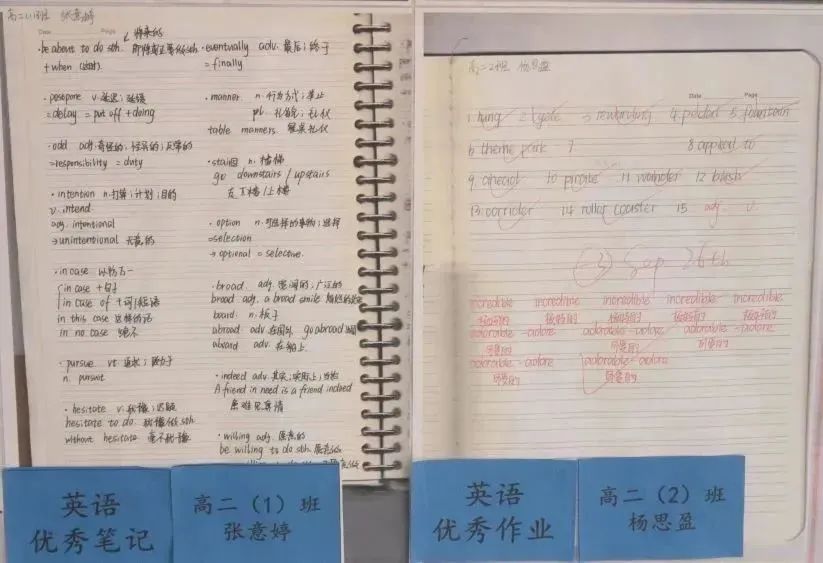 高二(1)班 张意婷
Date Page
将来的
·be about to do sth. 即将或正要做sth
+when (这时)
·postpone v.延迟;延缓
=delay = put off +doing
·odd adj.奇怪的;怪异的;反常的
=responsibility = duty
·intention n.打算;计划;目的
v. intend
adj. intentional
→unintentional 无意的
·in case 以防万一
in case +句子
in case of +词/短语
in this case 这样的话
in no case 绝不
·pursue vt.追求;致力于
n. pursuit
·hesitate v.犹豫;迟疑
hesitate to do. 犹豫做sth
without hesitate 毫不犹豫
·eventually adv.最后;终于
=finally
·manner n.行为方式;举止
pl. 礼貌;礼仪
table manners 餐桌礼仪
n.楼梯
go downstairs / upstairs
去下楼/上楼
·option n.可选择的事物;选择
=selection
→ optional = selective.
·broad. adj.宽阔的;广泛的
broad adj. a broad smile
board: n.板子
abroad adv.在国外 go abroad 出国
aboard adv.在船上.
·indeed adv.其实;实际上;当然
A friend in need is a friend indeed
患难见真情
·willing adj.愿意的
be willing to do sth.愿意做
英语
优秀笔记
高二(1)班
张意婷
高二2班 杨思盈
Date Page
1. lung 3 rewarding 5. fountain
6 theme park 7 8 applied to
9. ahead 10 pirate 11 wander 12 blush
13. corridor 14 roller coaster 15 adj. v.
(-3) Sep 26th
incredible incredible incredible incredible incredible
极好的 极好的 极好的 极好的 极好的
adorable-adore adorable-adore adorable-adore
可爱的 可爱的 可爱的
adorable-adore adorable-adore
可爱的 可爱的
英语
优秀作业
高二(2)班
杨思盈